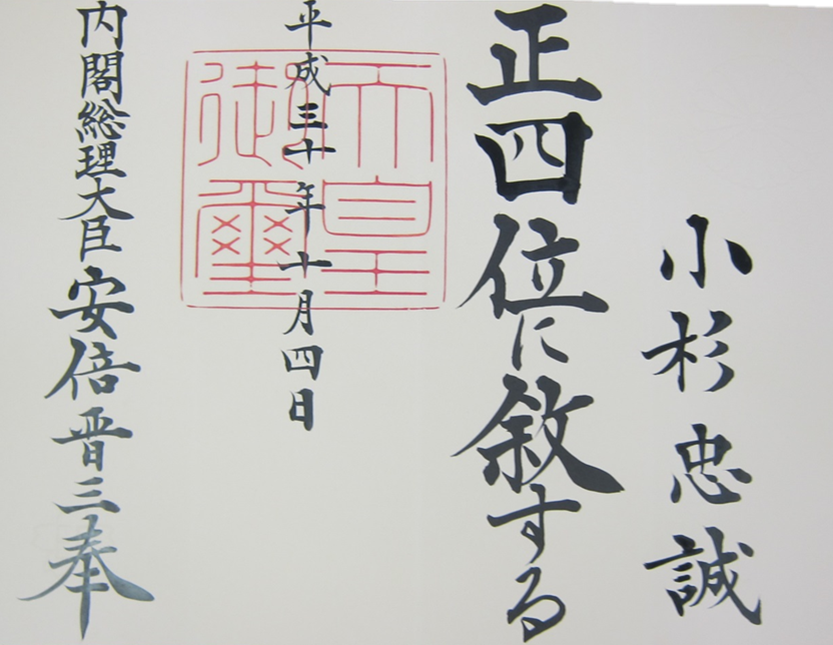 小杉忠誠
正四位に敘する
平成三十年十月四日
天皇御璽
内閣総理大臣安倍晋三奉